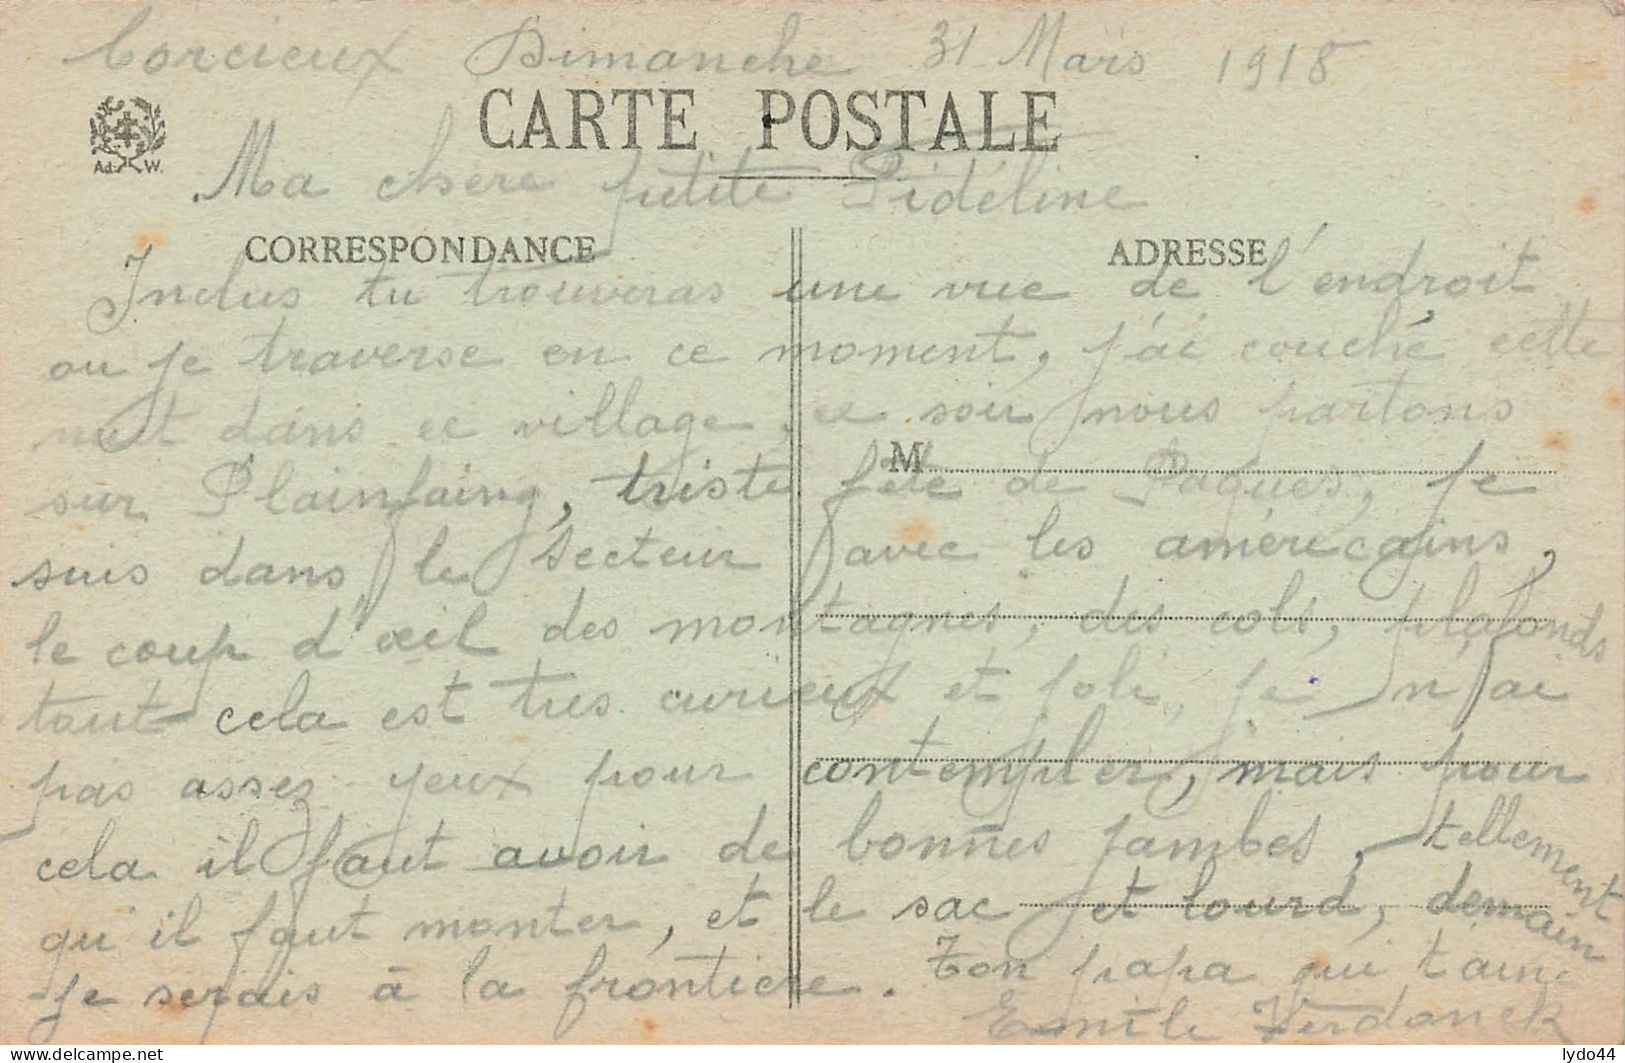 Corcieux Dimanche 31 Mars 1918
CARTE POSTALE
Ad. W.
Ma chere petite Fidéline
CORRESPONDANCE ADRESSE
Inclus tu trouveras une vue de l'endroit
ou je traverse en ce moment, j'ai couché cette
nuit dans ce village, ce soir nous partons
M
sur Plainfaing, triste fête de Paques, je
suis dans le secteur avec les américains,
le coup d'œil des montagnes, des cols, plafonds
tout cela est tres curieux et joli, je n'ai
pas assez yeux pour contempler, mais pour
cela il faut avoir de bonnes jambes, tellement
qu'il faut monter, et le sac et lourd, demain
je serais à la frontiere. Ton papa qui t'aime
Emile Verdonck
lydo44